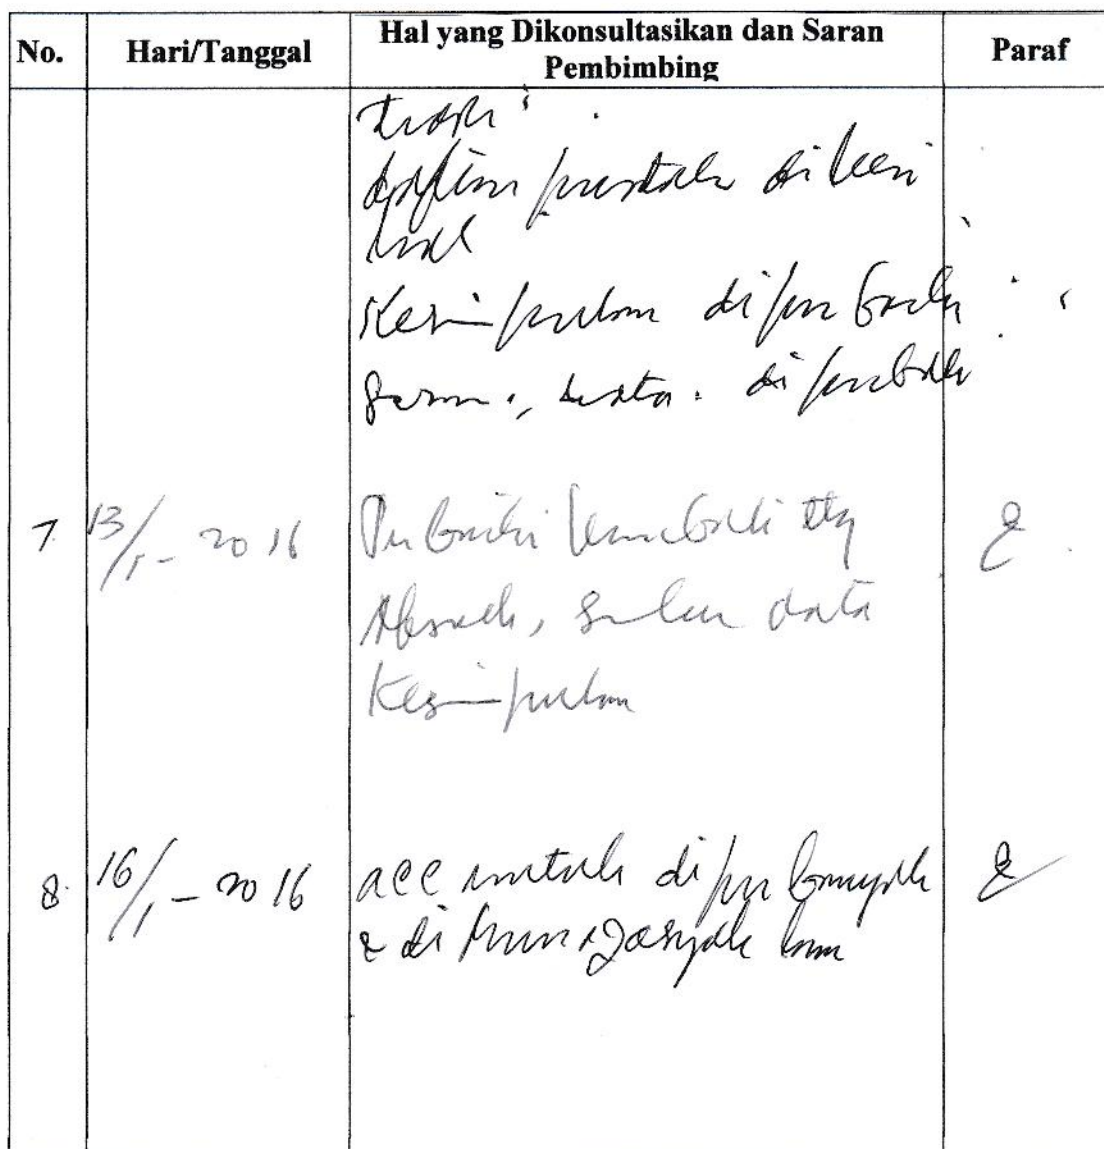 No. Hari/Tanggal Hal yang Dikonsultasikan dan Saran Pembimbing Paraf
pustaka di beri
Kesimpulan diperbaiki
Saran, data. diperbaiki
7. 13/1-2016 Perbaiki kembali ttg
Abstrak, data
Kesimpulan
8. 16/1-2016 acc untuk diperbanyak
& di munaqasyahkan